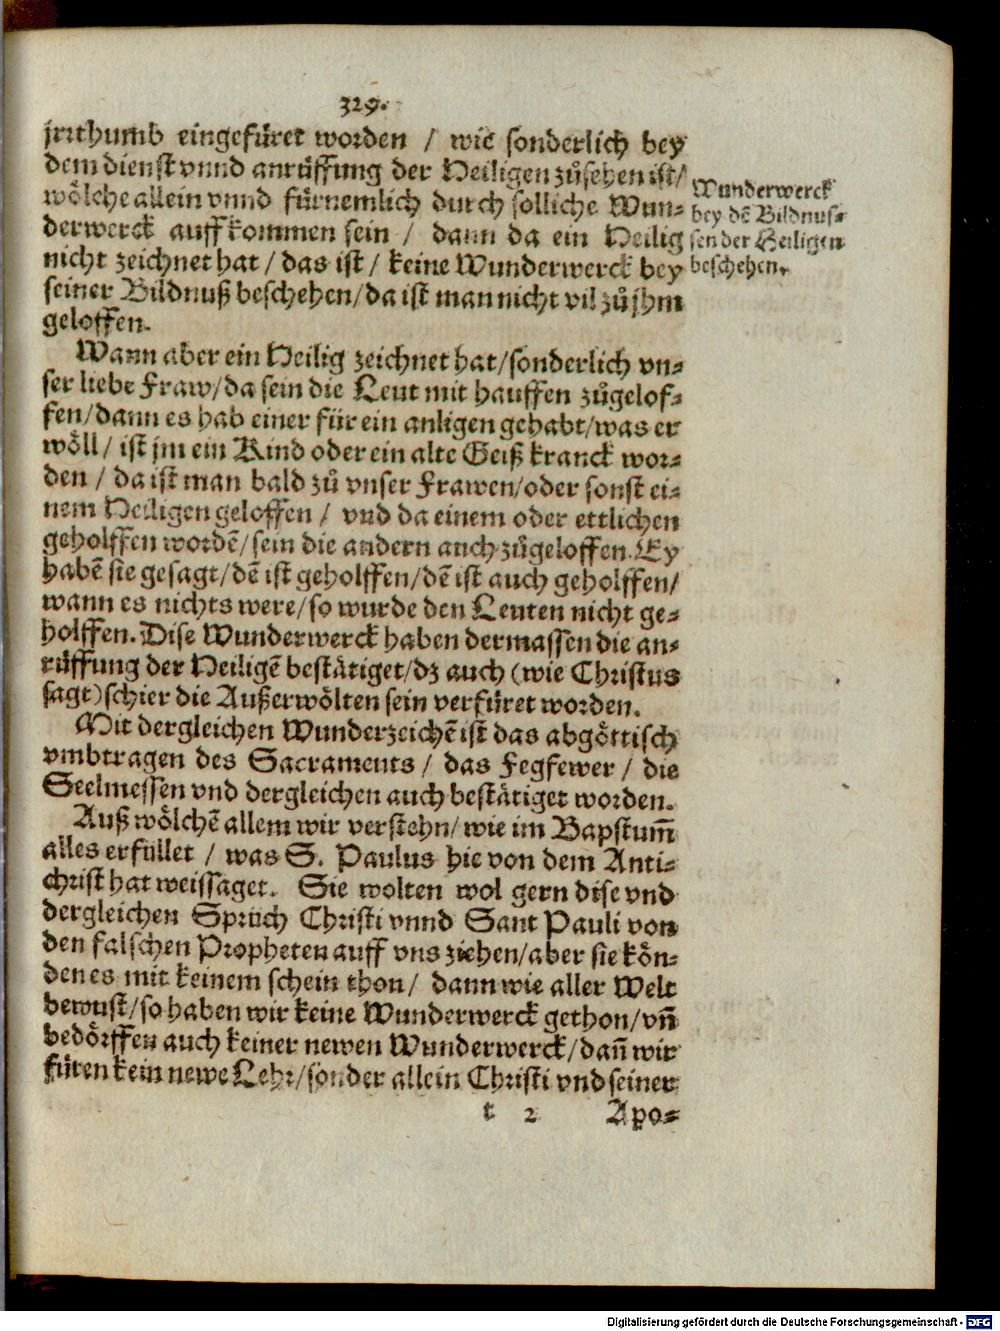 329.
jrrthumb eingefüret worden / wie sonderlich bey
dem dienst vnnd anrüffung der Heiligen zůsehen ist/
wölche allein vnnd fürnemlich durch solliche Wun-
derwerck auffkommen sein / dann da ein Heilig
nicht zeichnet hat / das ist / keine Wunderwerck bey
seiner Bildnuß beschehen/da ist man nicht vil zů jhm
geloffen.
Wunderwerck
bey dẽ Bildnus-
sen der Heiligen
beschehen.
Wann aber ein Heilig zeichnet hat/sonderlich vn-
ser liebe Fraw/da sein die Leut mit hauffen zůgelof-
fen/dann es hab einer für ein anligen gehabt/was er
wöll / ist jm ein Kind oder ein alte Geiß kranck wor-
den / da ist man bald zů vnser Frawen/oder sonst ei-
nem Heiligen geloffen / vnd da einem oder ettlichen
geholffen wordẽ/sein die andern auch zůgeloffen. Ey
habẽ sie gesagt/dẽ ist geholffen/dẽ ist auch geholffen/
wann es nichts were/so wurde den Leuten nicht ge-
holffen. Dise Wunderwerck haben dermassen die an-
rüffung der Heiligẽ bestätiget/dz auch (wie Christus
sagt) schier die Außerwölten sein verfüret worden.
Mit dergleichen Wunderzeichẽ ist das abgöttisch
vmbtragen des Sacraments / das Fegfewer / die
Seelmessen vnd dergleichen auch bestätiget worden.
Auß wölchẽ allem wir verstehn/wie im Bapstum̃
alles erfüllet / was S. Paulus hie von dem Anti-
christ hat weissaget. Sie wolten wol gern dise vnd
dergleichen Sprüch Christi vnnd Sant Pauli von
den falschen Propheten auff vns ziehen/aber sie kön-
den es mit keinem schein thon/ dann wie aller Welt
bewust/so haben wir keine Wunderwerck gethon/vñ
bedörffen auch keiner newen Wunderwerck/dañ wir
füren kein newe Lehr/sonder allein Christi vnd seiner
t 2 Apo-
Digitalisierung gefördert durch die Deutsche Forschungsgemeinschaft - DFG